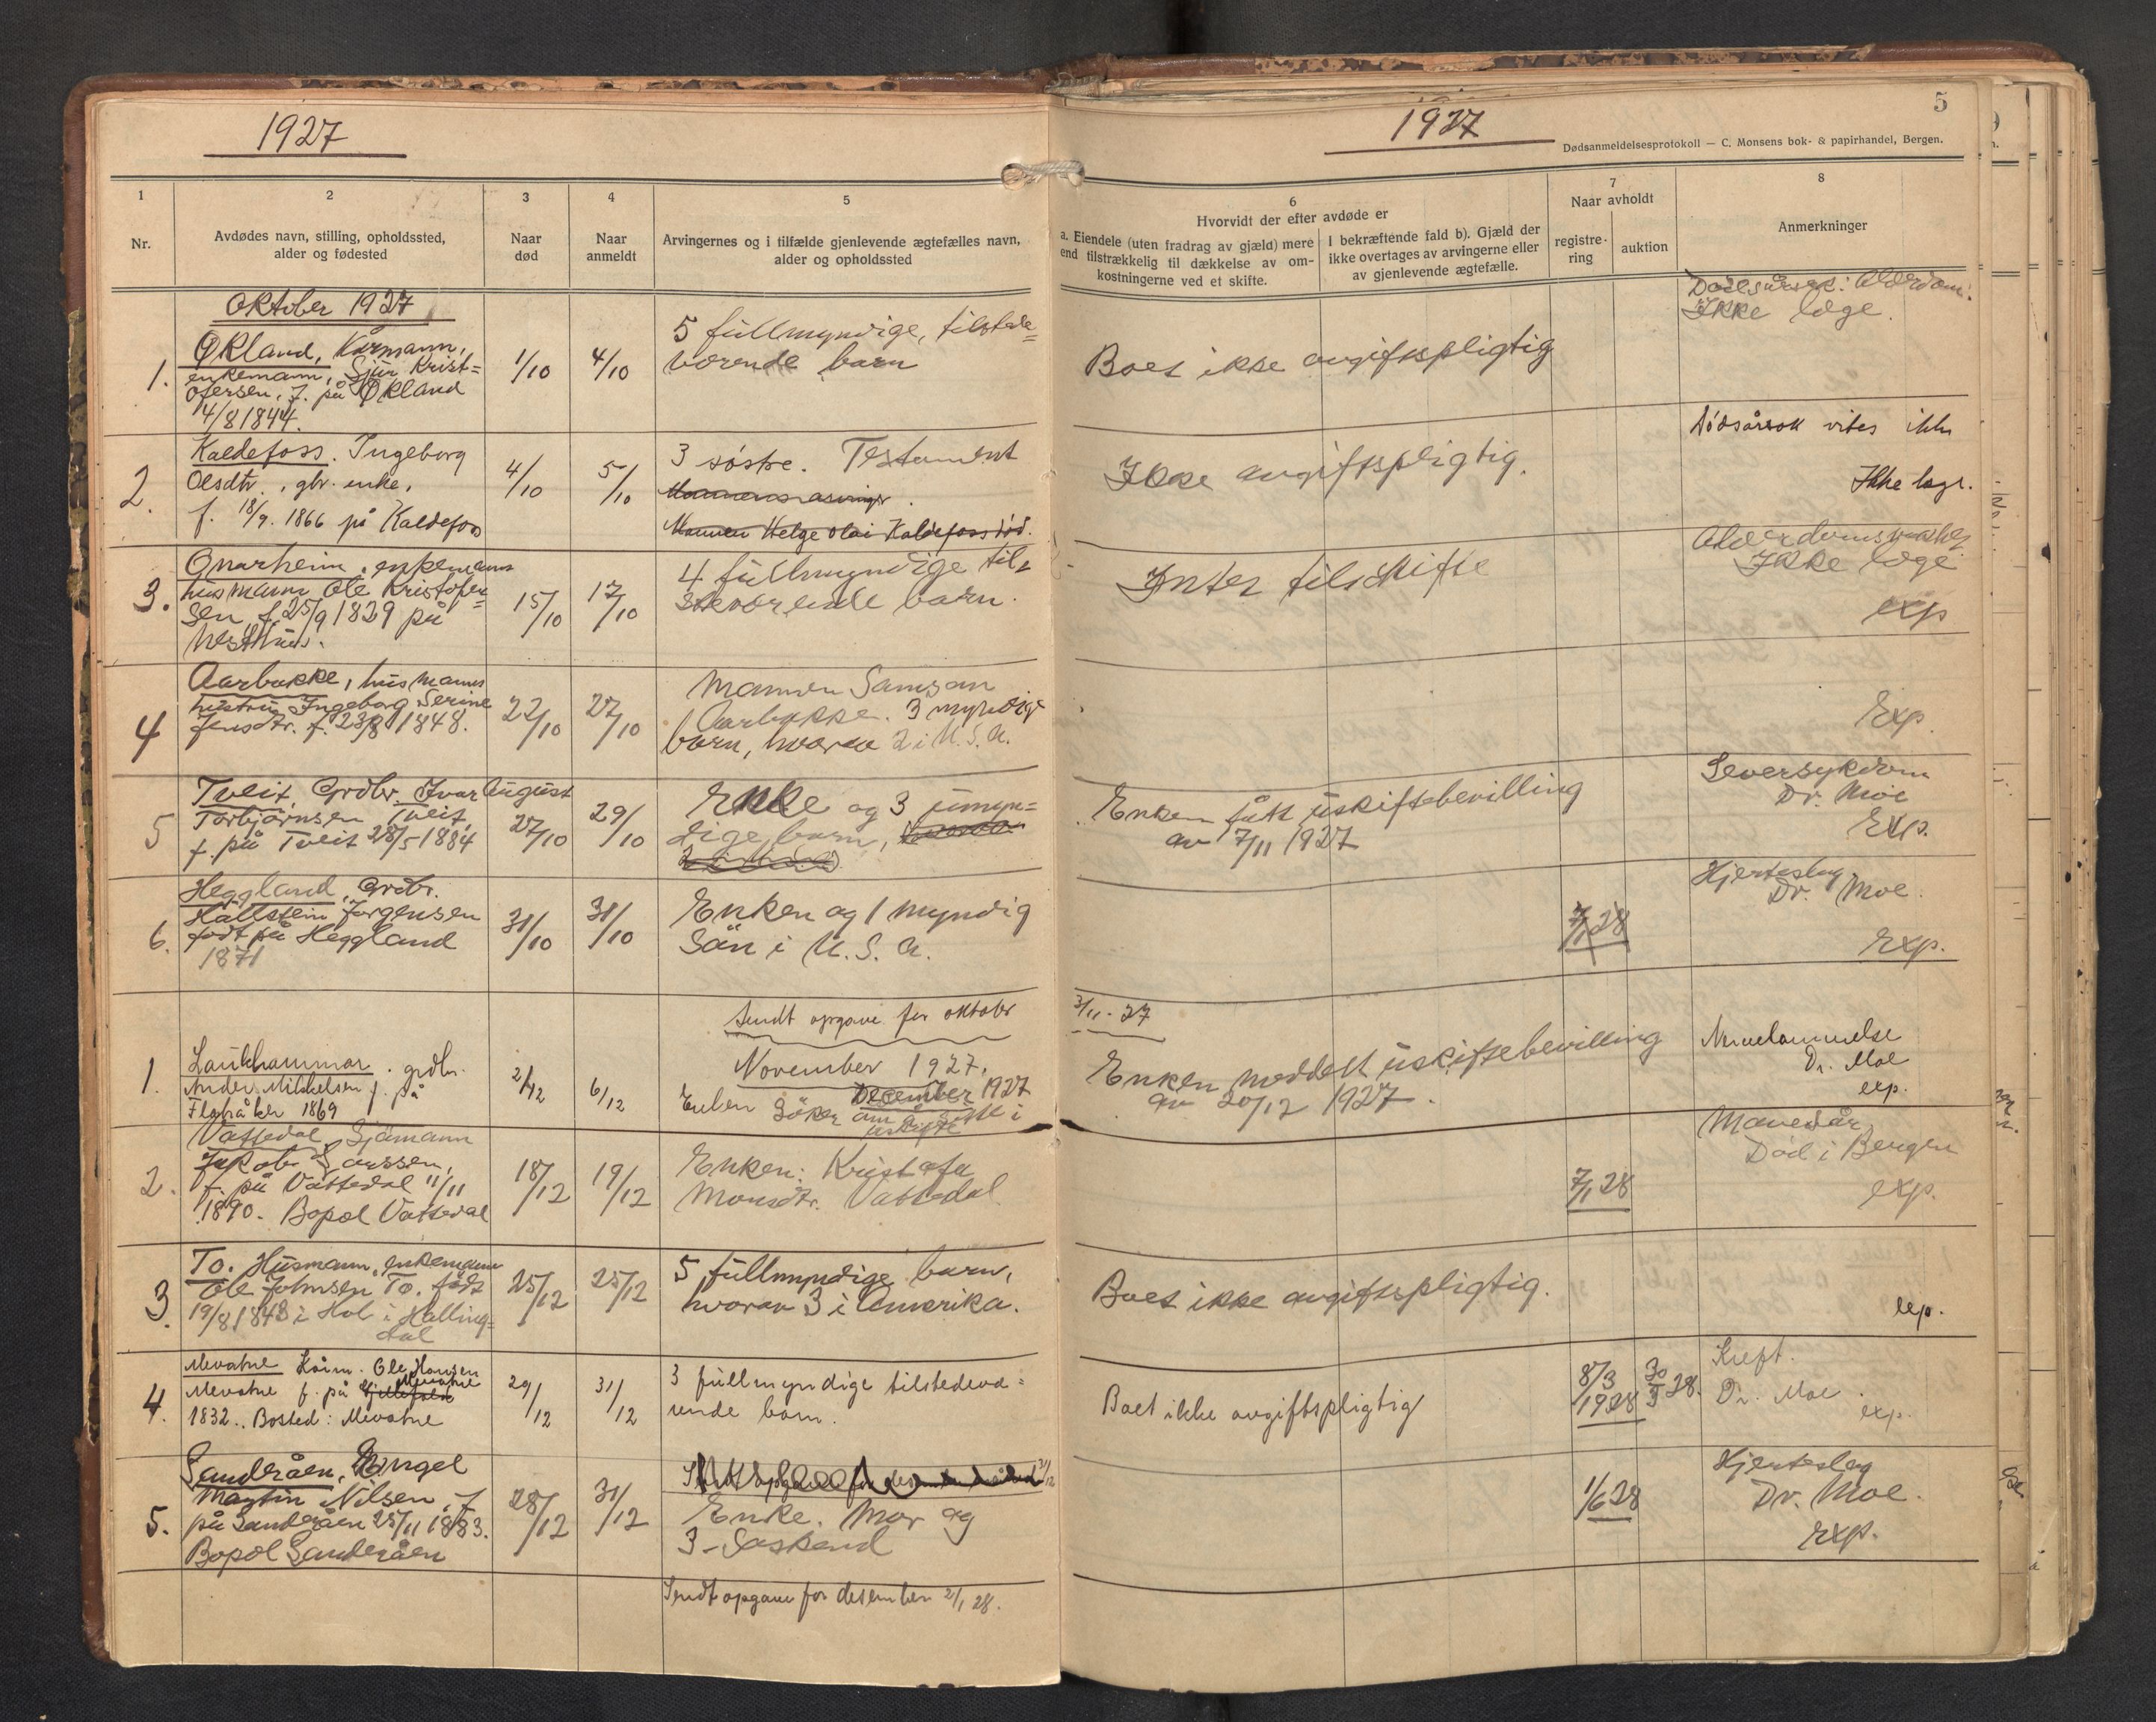 1927
1
2
3
4
5
Nr.
Avdødes navn, stilling, opholdssted,
alder og fødested
Naar
død
Naar
anmeldt
Arvingernes og i tilfælde gjenlevende ægtefælles navn,
alder og opholdssted
Oktober 1927
1.
Økland, Kårmann,
enkemann, Sjur Krist=
ofersen, f. på Økland
4/8 1844.
1/10
4/10
5 fullmyndige, tilstede=
værende barn
2.
Kaldefoss. Ingeborg
Olsdtr., gbr. enke,
f. 18/9. 1866 på Kaldefoss
4/10
5/10
3 søstre. Testament
Mannen Helge Olai Kaldefoss død.
3.
Onarheim, enkemann
husmann Ole Kristofer=
sen, f. 25/9 1839 på
15/10
17/10
4 fullmyndige til=
steværende barn.
4
Aarbakke, husmanns
hustru Ingeborg Serine
Jensdtr. f. 23/8 1848.
22/10
27/10
Mannen Samson
Aarbakke. 3 myndige
barn, hvorav 2 i U.S.A.
5
Tveit, Grdbr. Ivar August
Torbjørnsen Tveit
f. på Tveit 28/5 1884
27/10
29/10
Enke og 3 umyn=
dige barn,
6.
Heggland, Grdbr.
Hallstein Jørgensen
født på Heggland
1871
31/10
31/10
Enken og 1 myndig
Sön i U.S.A.
Sendt opgave for oktober
November 1927.
Desember 1927
1.
Laukhammar. grdbr.
Anders Mikkelsen f. på
Flatråker 1869
2/12
6/12
Enken søker om å sitte i
uskifte
2.
Vattedal Sjömann
Jakob Larssen,
f. på Vattedal 11/11
1890. Bopel Vattedal
18/12
19/12
Enken: Kristofa
Monsdtr. Vattedal
3.
To. Husmann, enkemann
Ole Johnsen To. født
19/8 1843 i Hol i Halling=
dal
25/12
25/12
5 fullmyndige barn,
hvorav 3 i Amerika.
4.
Mevatne Kårm. Ole Hansen
Mevatne f. på Mevatne
1832.. Bosted: Mevatne
29/12
31/12
3 fullmyndige tilstedevæ=
rende barn.
5.
Sanderåen, Engel
Martin Nilsen, f.
på Sanderåen 25/11 1883.
Bopel Sanderåen
28/12
31/12
Enke. Mor og
3 Søskend
Sendt opgave for desember 2/1 28.
1927
5
Dødsanmeldelsesprotokoll — C. Monsens bok- & papirhandel, Bergen.
6
Hvorvidt der efter avdøde er
a. Eiendele (uten fradrag av gjæld) mere
end tilstrækkelig til dækkelse av om-
kostningerne ved et skifte.
I bekræftende fald b). Gjæld der
ikke overtages av arvingerne eller
av gjenlevende ægtefælle.
7
Naar avholdt
registre-
ring
auktion
8
Anmerkninger
Boet ikke avgiftspligtig
Dødsårsak: Alderdom.
Ikke læge.
Ikke avgiftspligtig.
Dødsårsak vites ikke
Ikke læge.
Intet til skifte
Alderdomssvakhet
Ikke læge
exp
Exp.
Enken fått uskiftebevilling
av 7/11 1927
Leversykdom
Dr. Moe
Exp.
7/1 28
Hjerteslag
Dr. Moe.
Exp.
3/11-27
Enken meddelt uskiftebevilling
av 20/12 1927.
Nervelammelse
Dr. Moe
exp.
7/1 28
Mavesår
Død i Bergen
exp.
Boet ikke avgiftspligtig.
exp.
Boet ikke avgiftspligtig
8/3
1928
30/3 28.
Kreft.
Dr. Moe.
exp.
1/6 28
Hjerteslag
Dr. Moe.
exp.